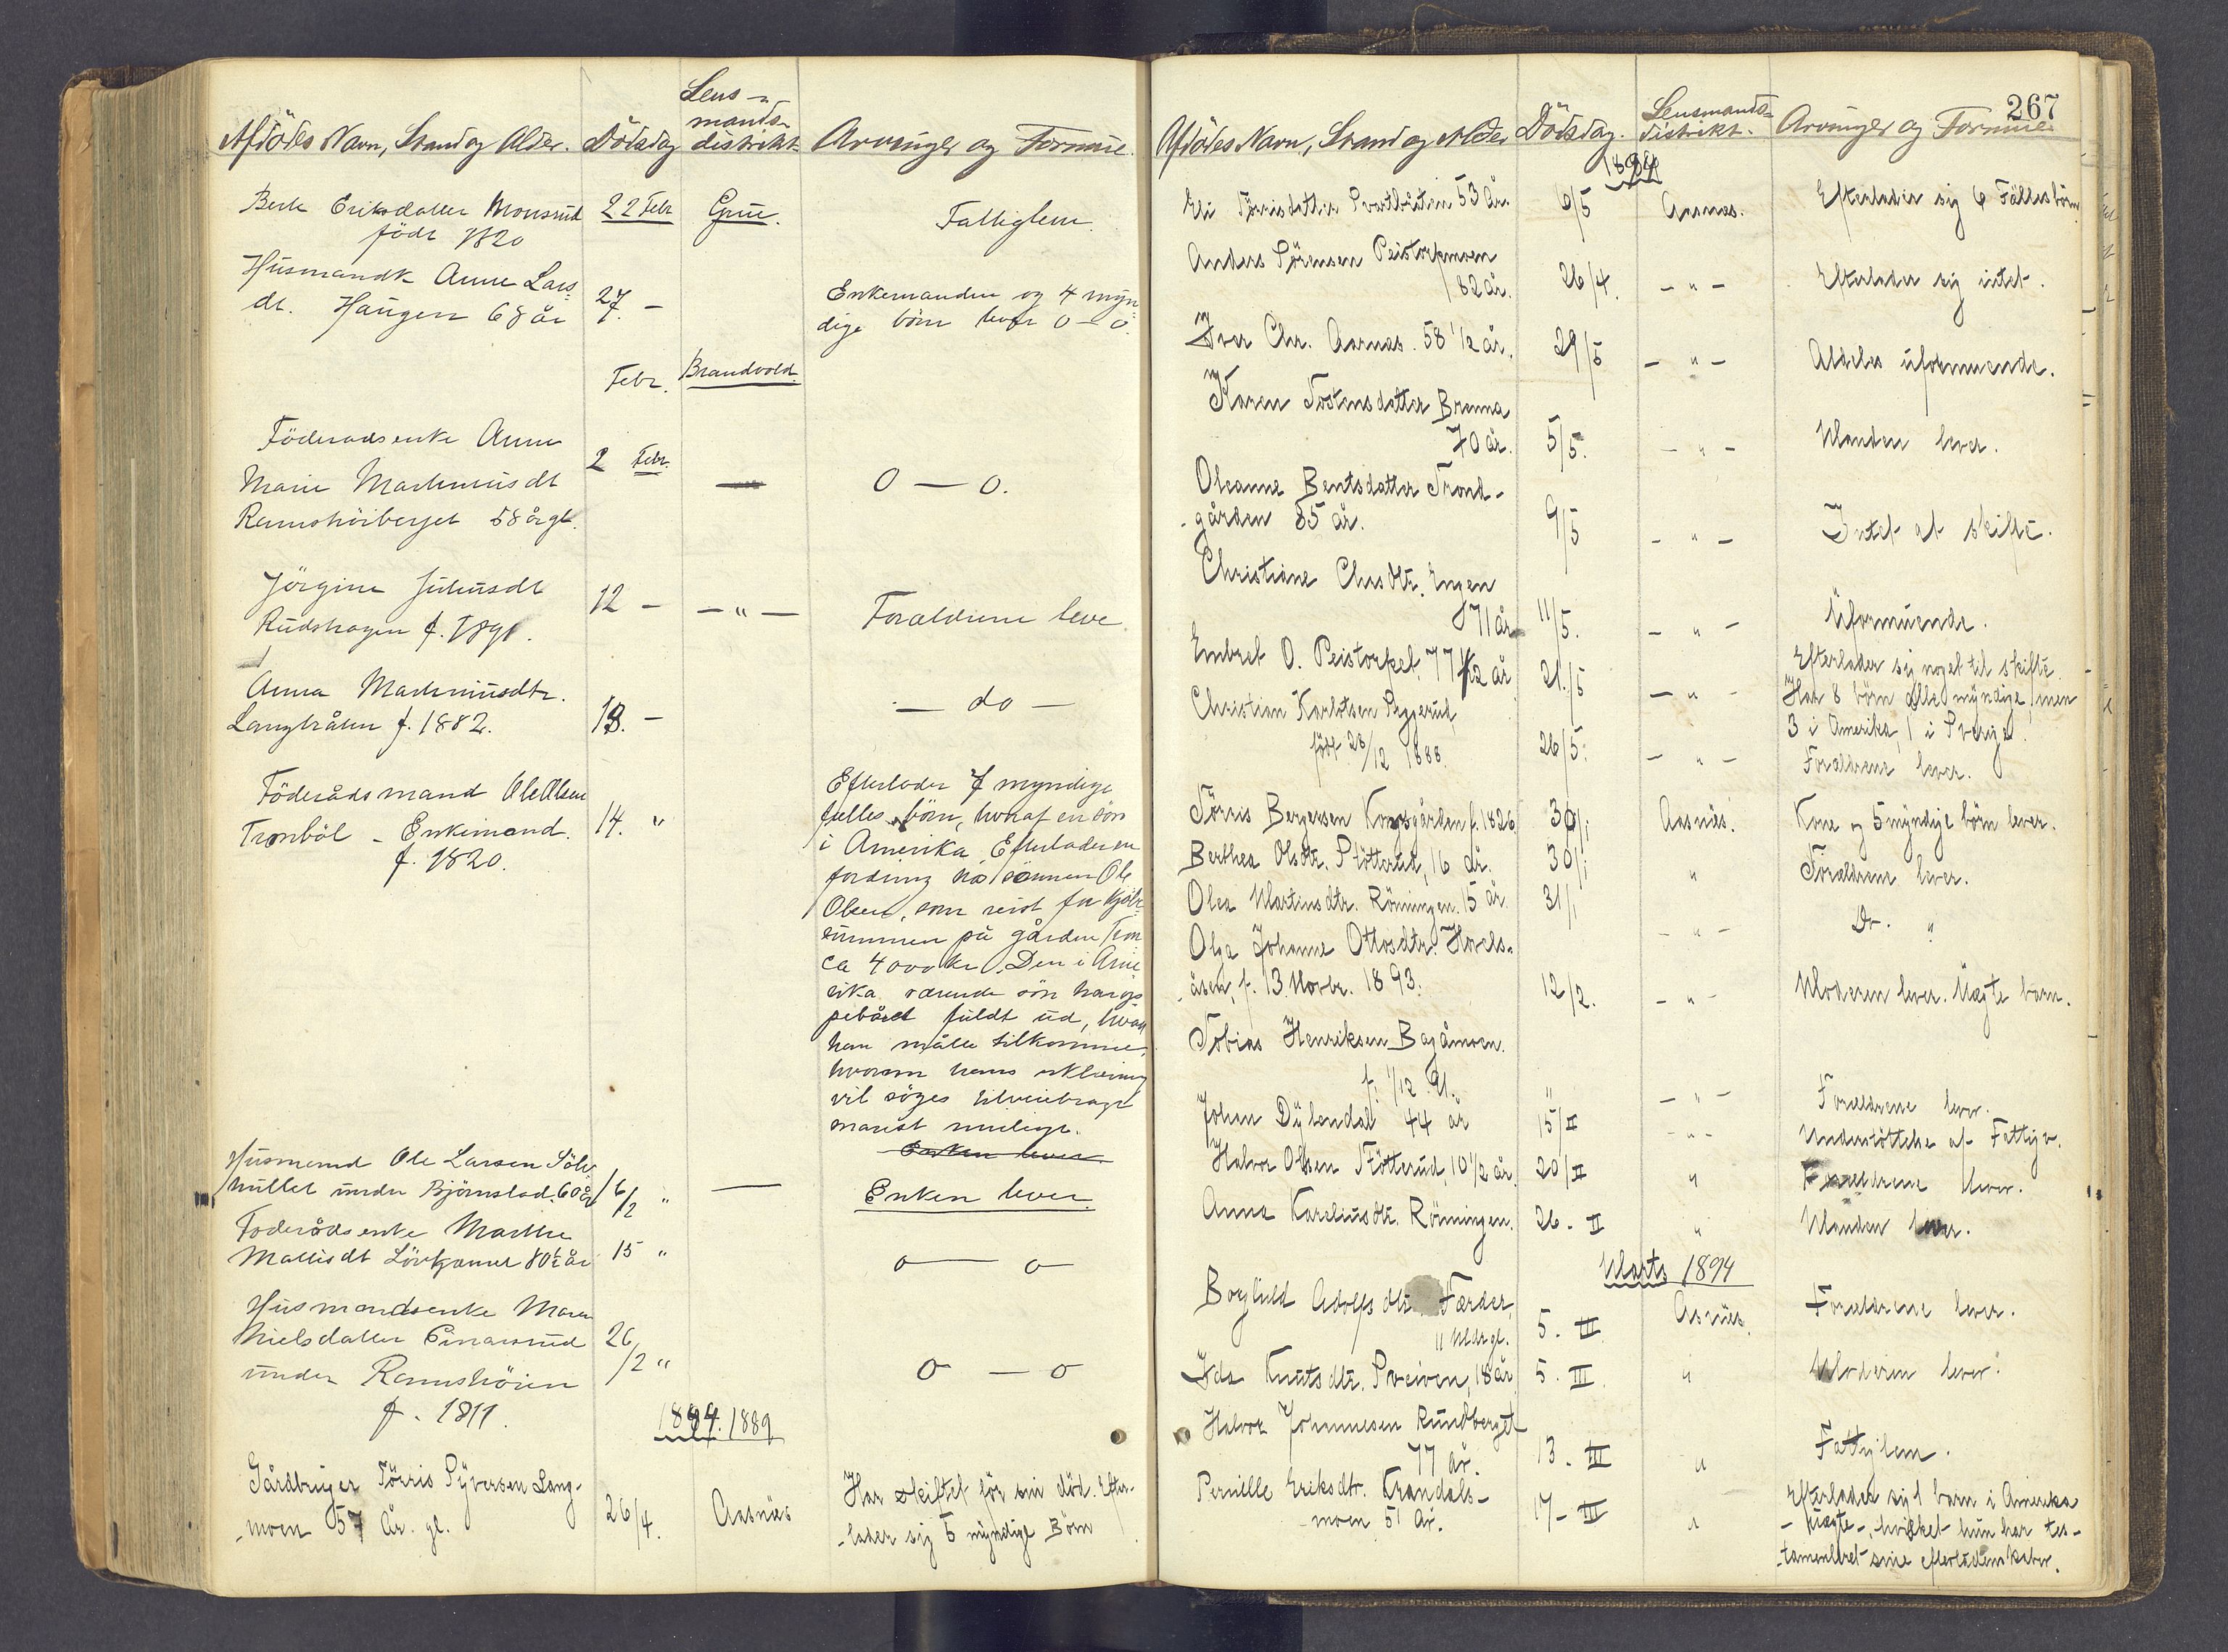 Afdödes Navn, Stand og Alder. Dödsdag Lens-
mands-
distrikt Arvinger og Formue.
Berte Eriksdatter Monsrud 22 Febr Grue. Fattiglem.
född 1820
Husmandk Anne Lars
dt. Haugen 68 år 27. - Enkemanden og 4 myn-
dige börn lever 0 — 0.
Febr. Brandvold.
Föderadsenke Anne
Marie Martiniusdt 2 Febr. — 0 — 0.
Ramshöiberget 58 år gl.
Jörgine Juliusdt 12 - — " — Forældrene leve
Rudshagen f. 1891.
Anna Martiniusdtr.
Langbråten f. 1882. 13. - — do —
Föderådsmand Ole Olsen
Tronböl - Enkemand. 14. "
f. 1820.
Efterlader 7 myndige
fælles börn, hvoraf en sön
i Amerika. Efterlader en
fordring hos sönnen Ole
Olsen, som rest for Kjöbe-
summen på gården Tron
ca 4000 kr. Den i Ame
rika værende sön har op-
pebåret fuldt ud, hvad
ham måtte tilkomme,
hvorom hans erklæring
vil söges tilveiebragt
snarest muligt.
Enken lever.
Husmand Ole Larsen Sölv
hullet under Björnstad. 60 år 16/2 " — Enken lever.
Föderådsenke Marthe
Mattisdt Lövhammer 80½ år 15 " 0 — 0
Husmandsenke Maren
Nielsdatter Einarsrud 26/2 "
under Ramshöien 0 — 0
f. 1811.
1894. 1889
Gårdbruger Törris Syversen Lang-
-moen 57 År. gl. 26/4. Aasnäs Har skiftet för sin död. Efter-
-lader sig 5 myndige Börn
267
Afdödes Navn, Stand og Alder Dödsdag. Lensmands-
distrikt. Arvinger og Formue
1894
Eli Törrisdatter Svartbæcken 53 År. 6/5 Aasnæs. Efterlader sig 6 Fællesbörn
Anders Sörensen Peistorpmoen
82 år. 26/4. - " - Efterlader sig intet.
Iver Chr. Aasnæs. 58 1/2 år. 29/5 - " - Aldeles uformuende.
Karen Tostensdatter Brenna
70 år. 5/5. - " - Manden lever.
Oleanne Bentsdatter Trond-
-gården 85 år. 9/5 - " - Intet at skifte.
Christiane Chrsdtr. Engen
71 år 11/5. - " - Uformuende.
Embret O. Peistorpet, 77 1/2 år 21/5 - " - Efterlader sig noget til skifte.
Har 8 börn alle myndige, men
3 i Amerika, 1 i Sverige.
Christian Karlotsen Seggerud,
född 28/12 1888. 26/5. - " - Forældrene lever.
Törris Bergersen Kongsgården f. 1826 30/1 Aasnäs. Kone og 5 myndige börn lever.
Berthea Olsdtr. Slötterud, 16 år. 30/1 " Forældrene lever.
Olea Martinsdtr. Röiningen. 15 år 31/1 - " - Do. "
Olga Johanne Ottosdtr. Hovels-
åsen, f. 13. Novbr. 1893. 12/2. - " - Moderen lever. Uægte barn.
Tobias Henriksen Bagåmoen.
f. 1/12 91. " - " - Forældrene lever.
Johan Dylendal 44 år 15/II - " - Understöttelse af Fattigv.
Halvor Olsen Slötterud, 10 1/2 år. 20/II " Forældrene lever.
Anna Kareliusdtr. Röiningen. 26. II " Manden lever.
Marts 1894
Borghild Adolfsdtr. Færder, 5. III Asnäs. Forældrene lever.
11 Mdr gl.
Ida Knutsdtr. Sveiven, 18 år 5. III " Moderen lever.
Halvor Johannesen Rundberget
77 år. 13. III " Fattiglem.
Pernille Eriksdtr. Krandals-
-moen 51 År. 17- III " Efterlader sig 1 barn i Amerika
- uægte -, hvilket hun har tes-
-tamenteret sine efterladenskaber.